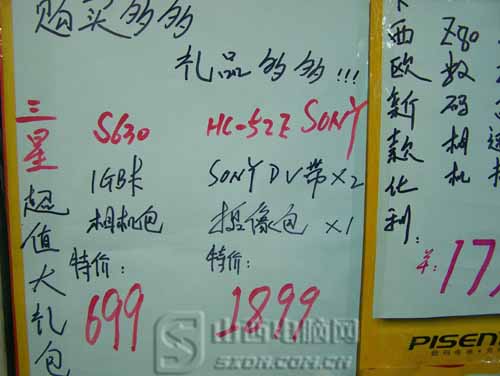 购买多多
礼品多多!!!
三星超值大礼包
S630
1GB卡
相机包
特价:
699
HC-52E SONY
SONY DV带×2
摄像包×1
特价:
1899
卡西欧新款
Z80
数码相机
便利:
PISEN
山西电脑网
SXDN.COM.CN